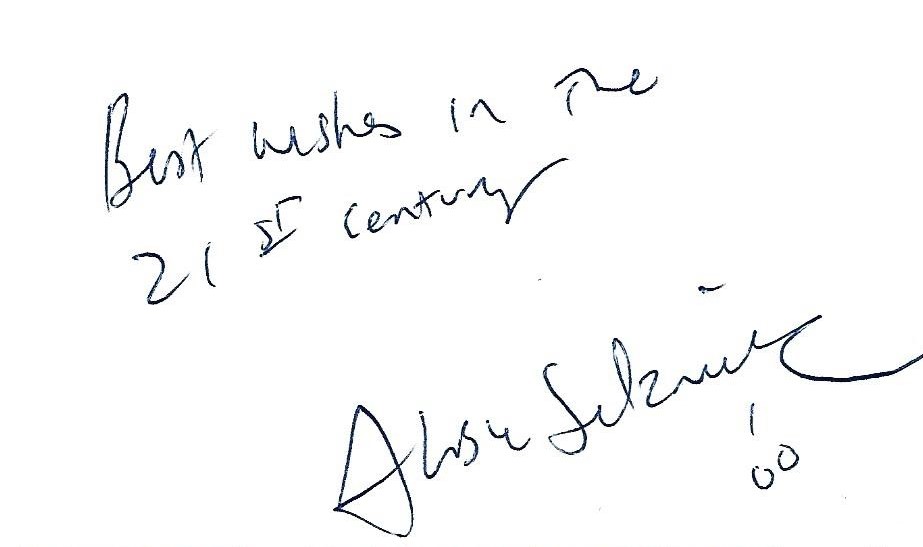 Best wishes in the
21st century
Selznick
'00